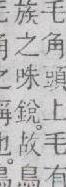 毛角頭上毛有
族之咮銳故鳥